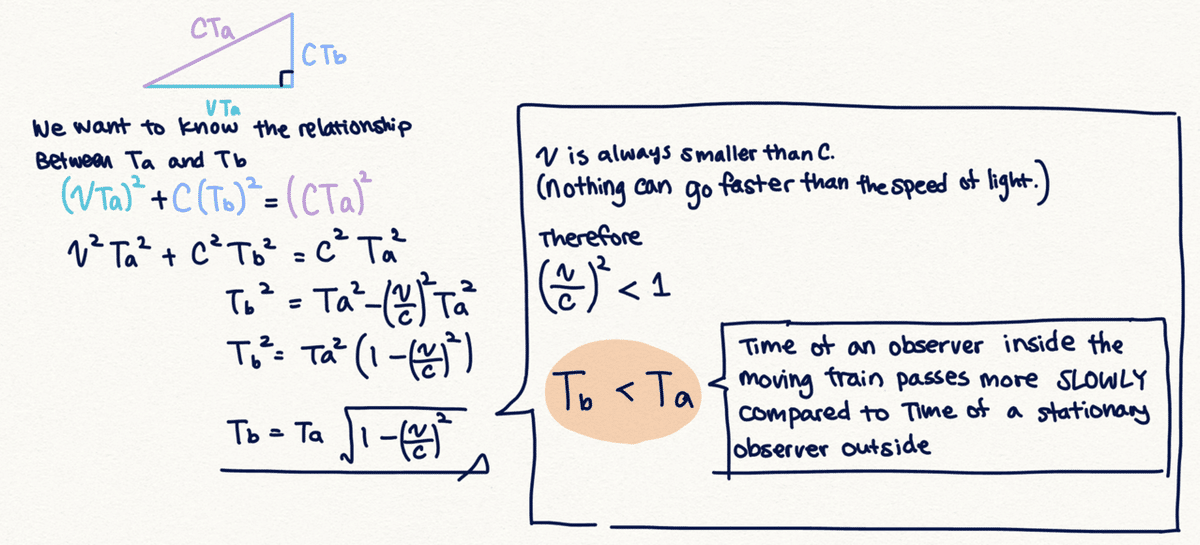 CTa
CTb
VTa
We want to know the relationship
Between Ta and Tb
(VTa)² + C(Tb)² = (CTa)²
v²Ta² + C²Tb² = C²Ta²
Tb² = Ta² - (v/c)² Ta²
Tb² = Ta² (1 - (v/c)²)
Tb = Ta √1 - (v/c)²
v is always smaller than C.
(nothing can go faster than the speed of light.)
Therefore
(v/c)² < 1
Tb < Ta
Time of an observer inside the
moving train passes more SLOWLY
compared to Time of a stationary
observer outside